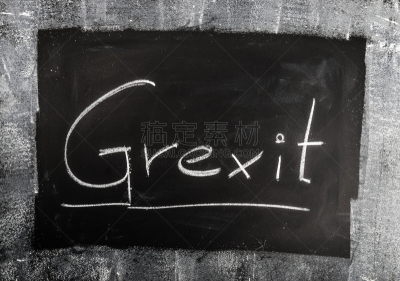 Grexit
搞定素材